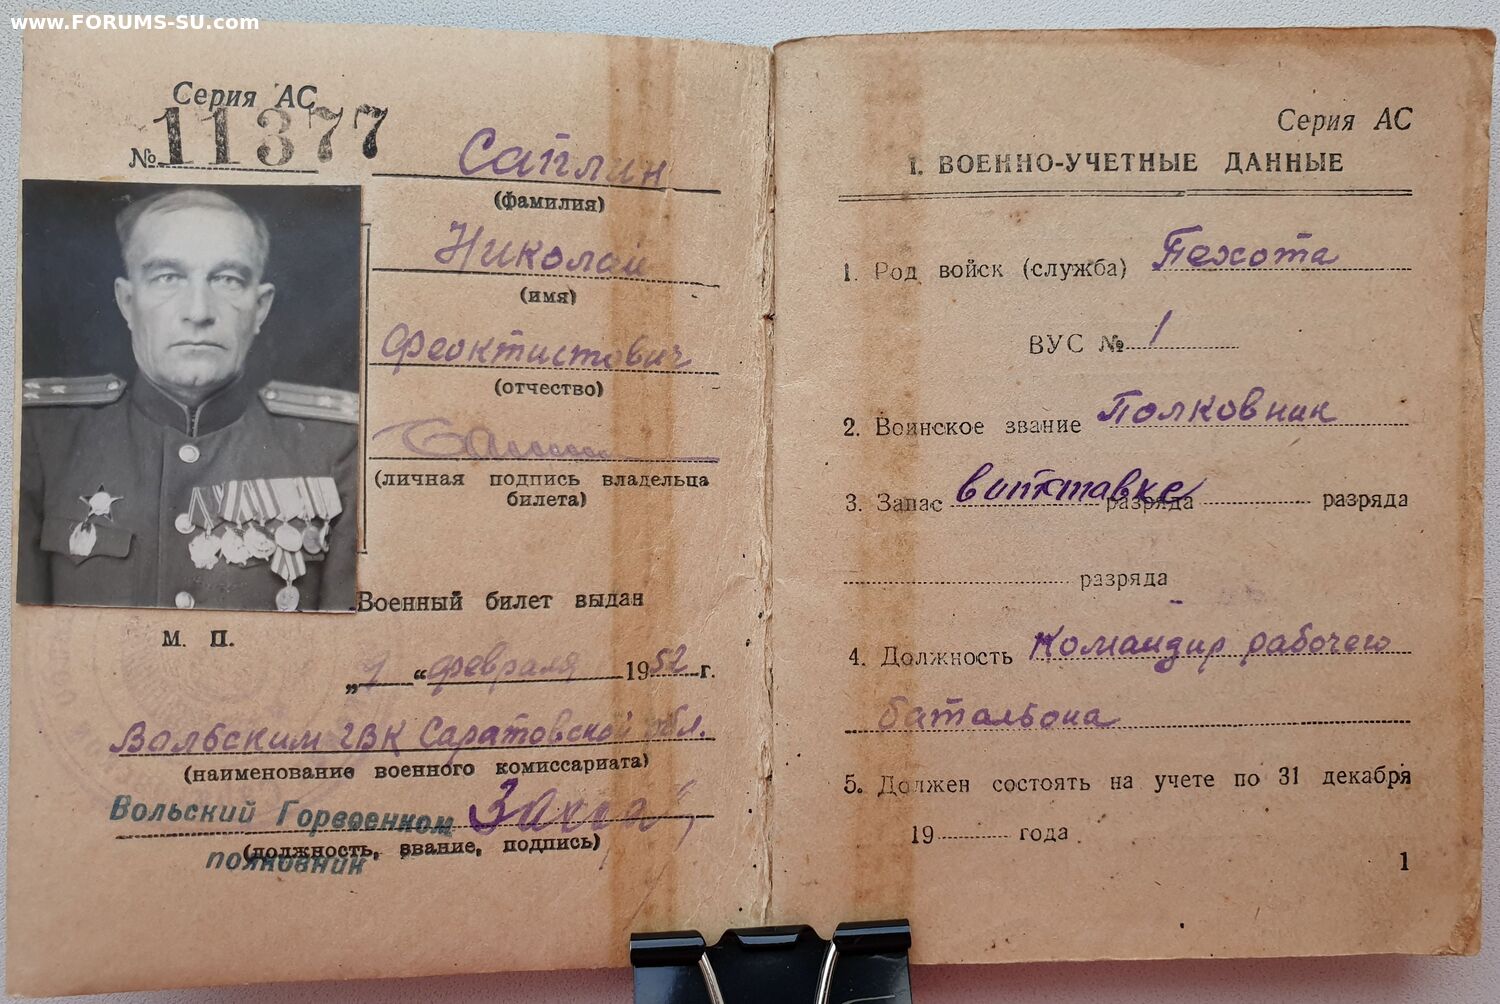 www.FORUMS-SU.com
Серия АС
№ 11377
Саплин
(фамилия)
Николай
(имя)
Феоктистович
(отчество)
(личная подпись владельца
билета)
Военный билет выдан
М. П.
„9“ февраля 1952 г.
Вольским ГВК Саратовской обл.
(наименование военного комиссариата)
Вольский Горвоенком
(должность, звание, подпись)
полковник
Серия АС
I. ВОЕННО-УЧЕТНЫЕ ДАННЫЕ
1. Род войск (служба) Пехота
ВУС № 1
2. Воинское звание Полковник
3. Запас разряда разряда
разряда
4. Должность Командир рабочего
батальона
5. Должен состоять на учете по 31 декабря
19 года
1